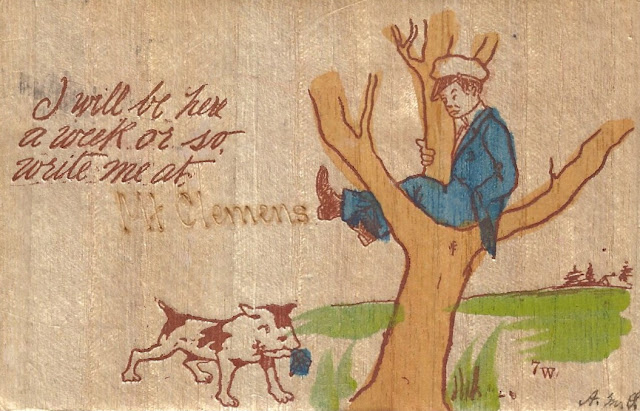 I will be here
a week or so,
write me at
Mt Clemens
7W.